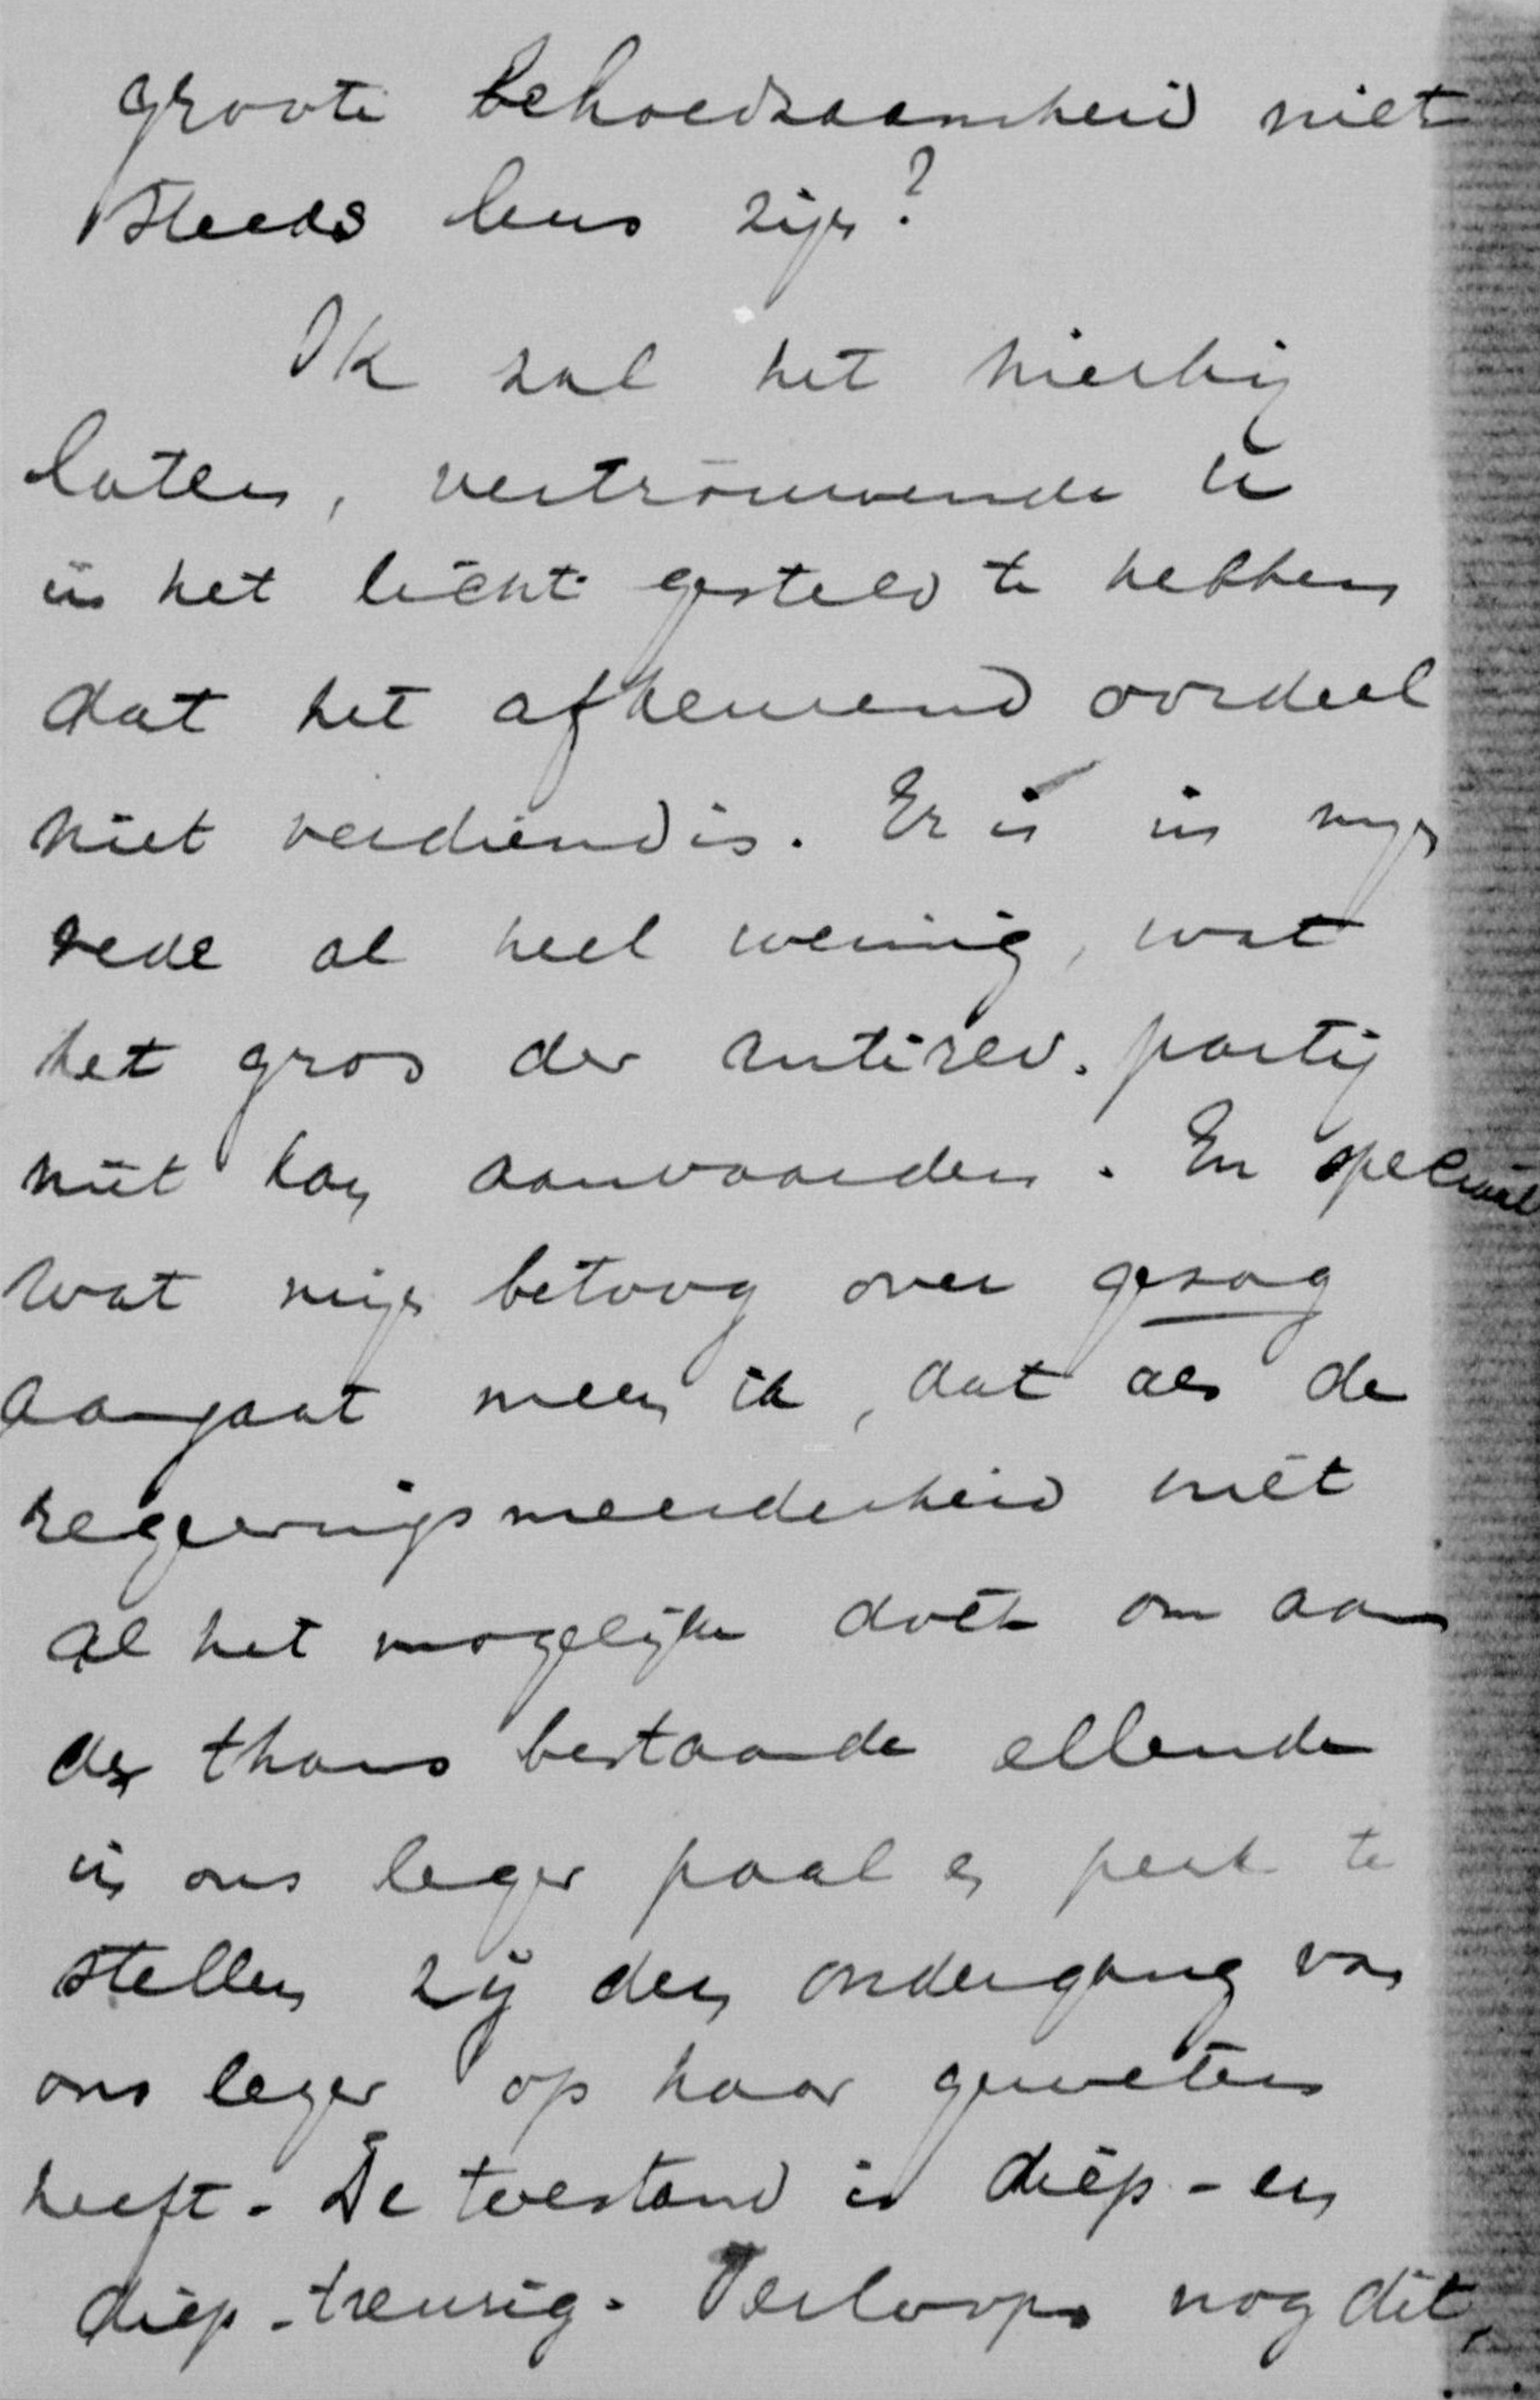 groote behoedzaamheid niet
steeds leus zijn?
Ik zal het hierbij
laten, vertrouwende U
in het licht gesteld te hebben
dat het afkeurend oordeel
niet verdiend is. Er is in mijn
rede al heel weinig, wat
het gros der antirev. partij
niet kan aanvaarden. En speciaal
wat mijn betoog over gezag
aangaat meen ik, dat als de
regeeringsmeerderheid niet
al het mogelijke doet om aan
de thans bestaande ellende
in ons leger paal en perk te
stellen zij den ondergang van
ons leger op haar geweten
heeft. De toestand is diep- en
diep-treurig. Verloops nog dit,